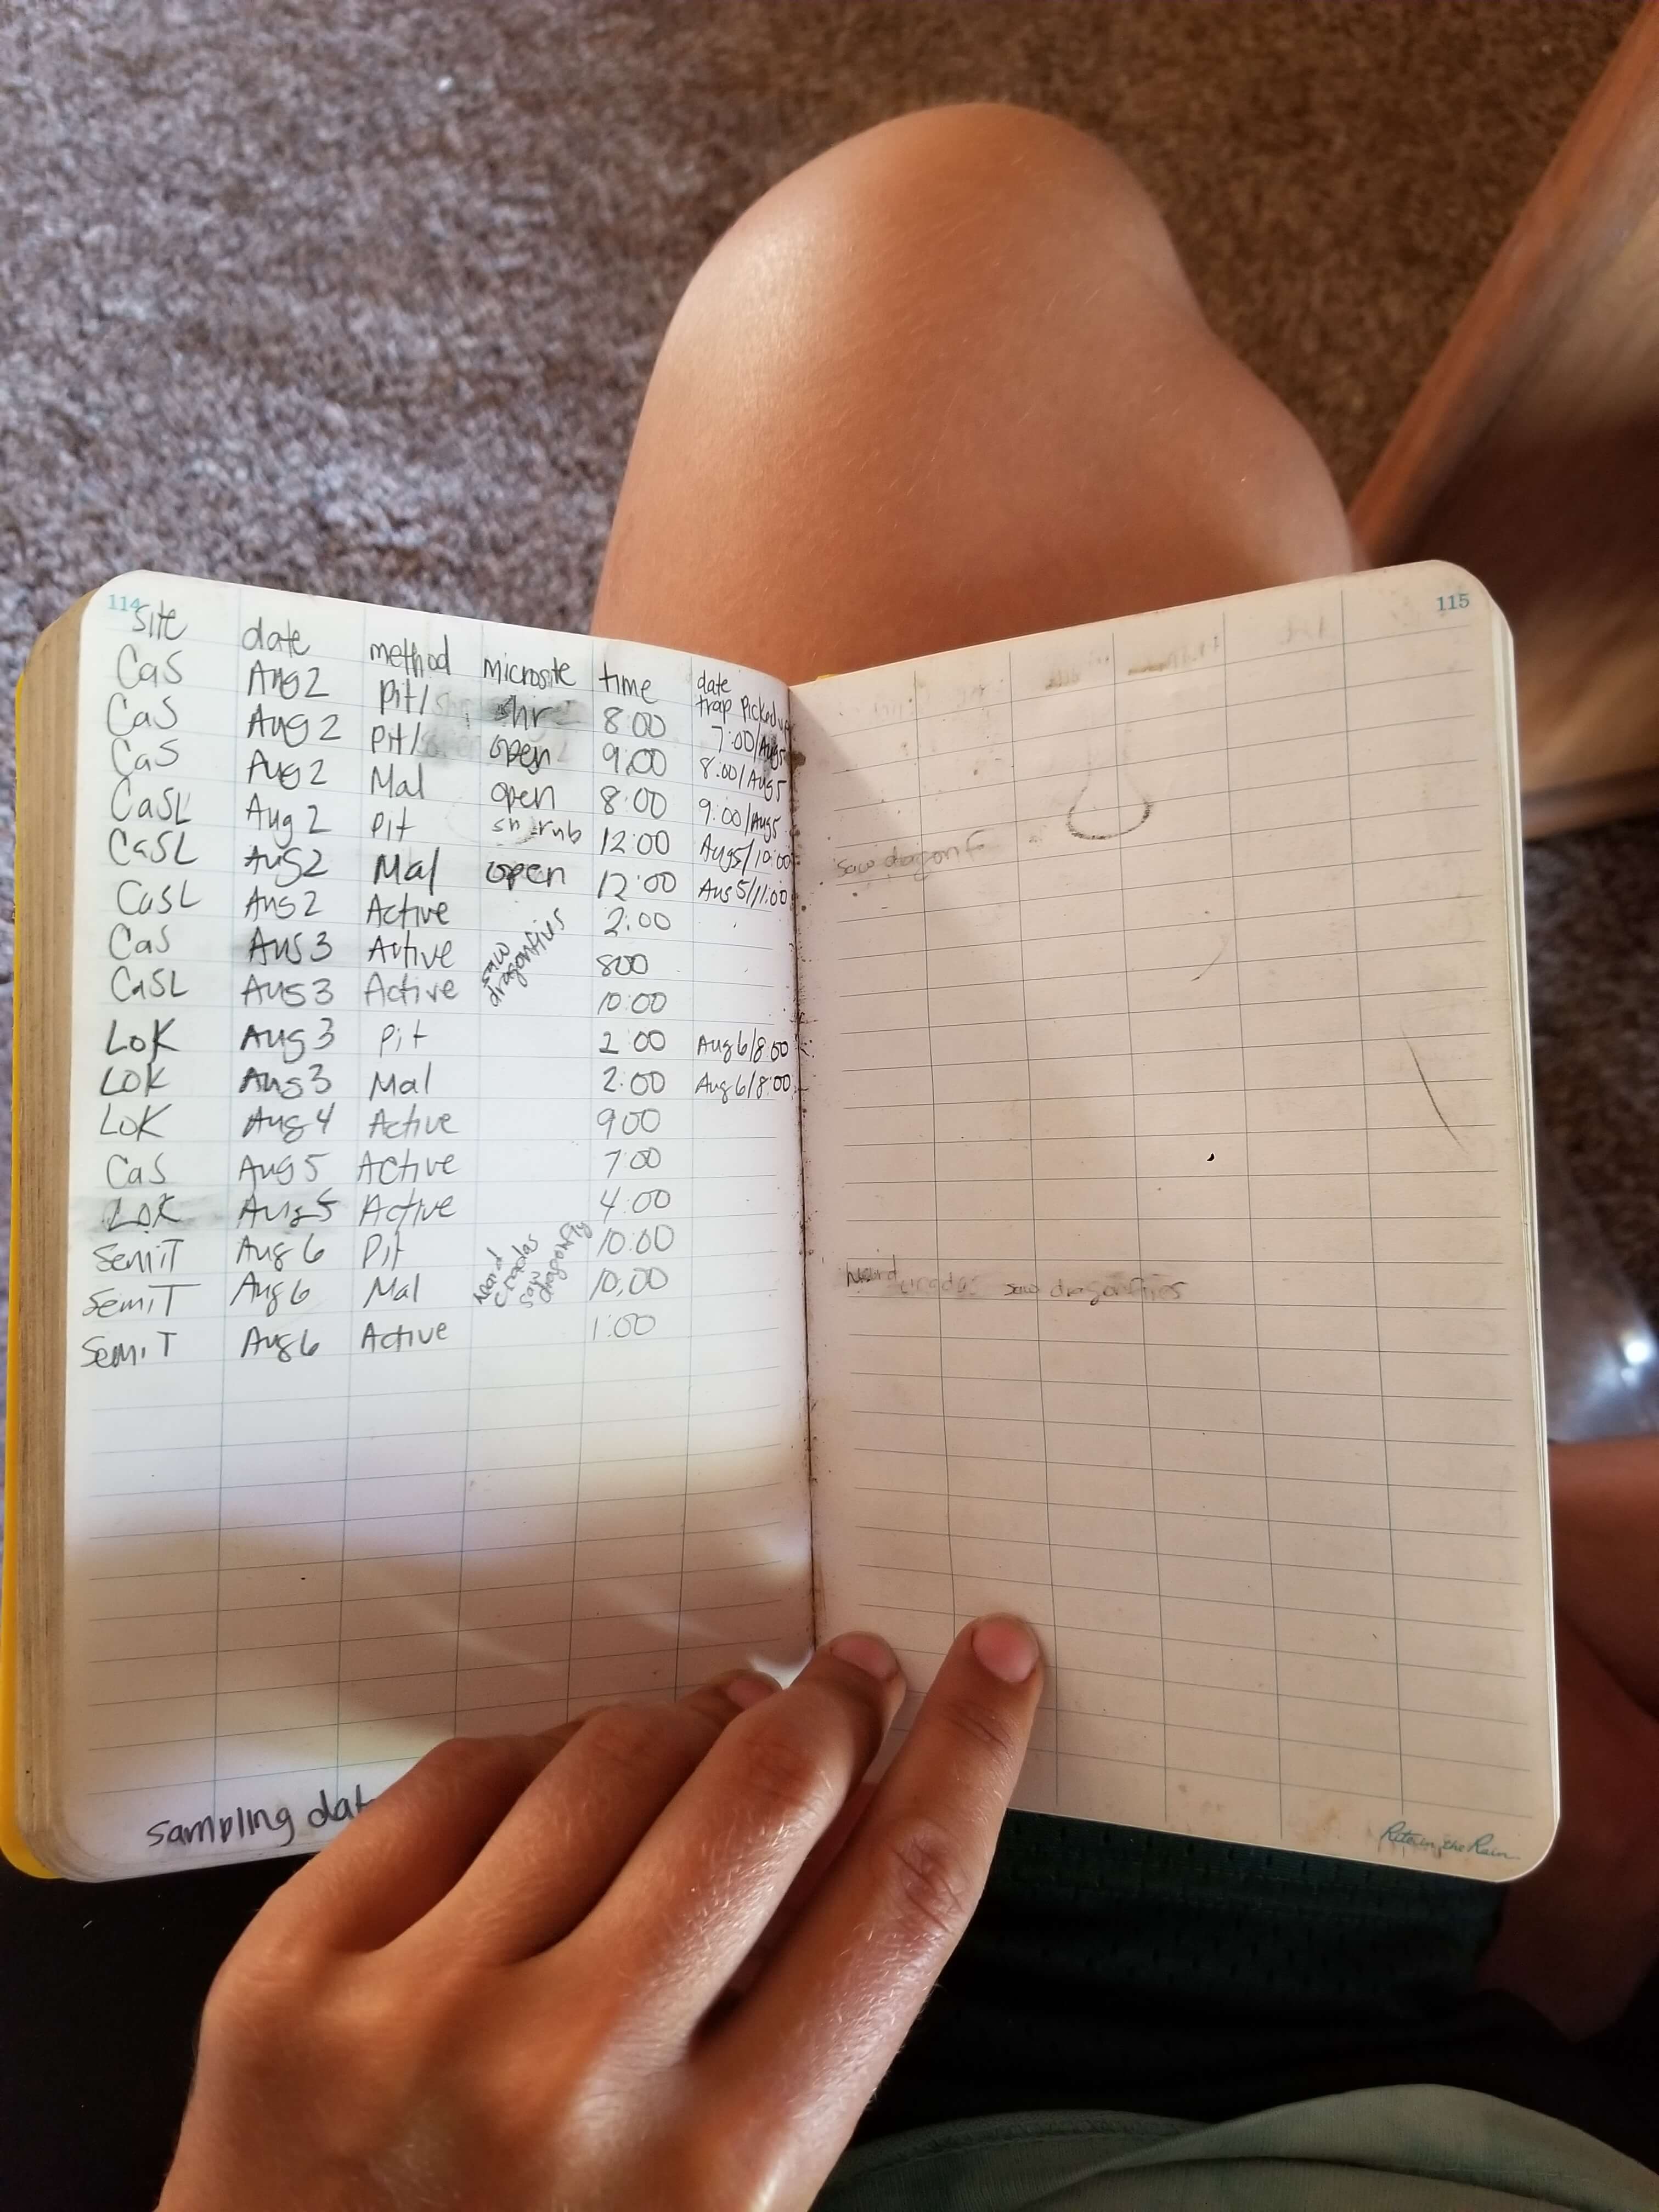 114 115
site date method microsite time date trap Picked up
CaS Aug 2 Pit/ shr 8:00 7:00/Aug5
CaS Aug 2 Pit/ open 9:00 8:00/Aug5
CaS Aug 2 Mal open 8:00 9:00/Aug5
CaSL Aug 2 Pit shrub 12:00 Aug5/10:00
CaSL Aug2 Mal open 12:00 Aug5/11:00
CaSL Aug2 Active 2:00
CaS Aug 3 Active saw dragonflies 800
CaSL Aug 3 Active 10:00
LoK Aug 3 Pit 2:00 Aug6/8:00
LoK Aug 3 Mal 2:00 Aug6/8:00
LoK Aug 4 Active 900
CaS Aug 5 Active 7:00
LoK Aug 5 Active 4:00
SemiT Aug 6 Pit 10:00
SemiT Aug 6 Mal heard cicadas saw dragonfly 10:00
SemiT Aug 6 Active 1:00
saw dragonf
heard saw dragonflies
sampling dat
Rite in the Rain